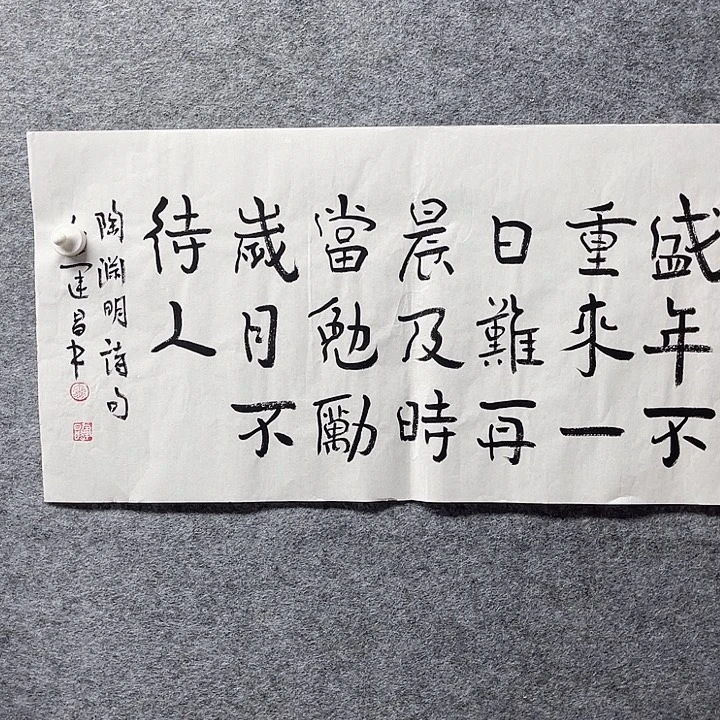 盛年不
重來一
日難再
晨及時
當勉勵
歲月不
待人
陶淵明詩句
運昌书